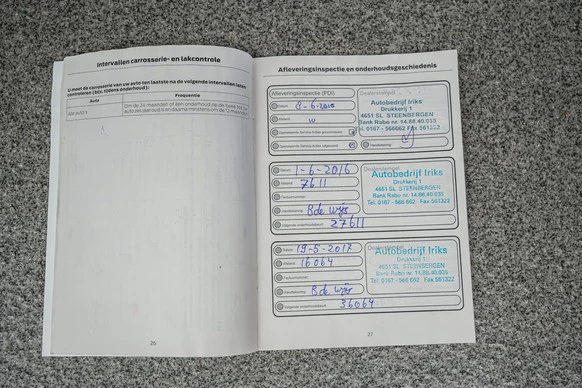 Intervallen carrosserie- en lakcontrole
U moet de carrosserie van uw auto ten laatste na de volgende intervallen laten
controleren (bijv. tijdens onderhoud):
Auto Frequentie
Alle auto's
Om de 24 maanden of één onderhoud op de twee
26
Afleveringsinspectie en onderhoudsgeschiedenis
Afleveringsinspectie (PDI)
Datum
Afstand
Handtekening
Dealerstempel
Autobedrijf Iriks
Drukkerij 1
4651 SL STEENBERGEN
Bank Rabo nr. 14.86.40.035
Tel. 0167 - 566662 Fax 561322
Datum 1-6-2016
Afstand 7611
Factuurnummer
Handtekening B de Wijs
Volgende onderhoudsbeurt 27611
Dealerstempel
Autobedrijf Iriks
Drukkerij 1
4651 SL STEENBERGEN
Bank Rabo nr. 14.86.40.035
Tel. 0167 - 566 662 Fax 561322
Datum 19-5-2017
Afstand 16064
Factuurnummer
Handtekening B de Wijs
Volgende onderhoudsbeurt 36064
Dealerstempel
Autobedrijf Iriks
Drukkerij 1
4651 SL STEENBERGEN
Bank Rabo nr. 14.86.40.035
Tel. 0167 - 566 662 Fax 561322
27